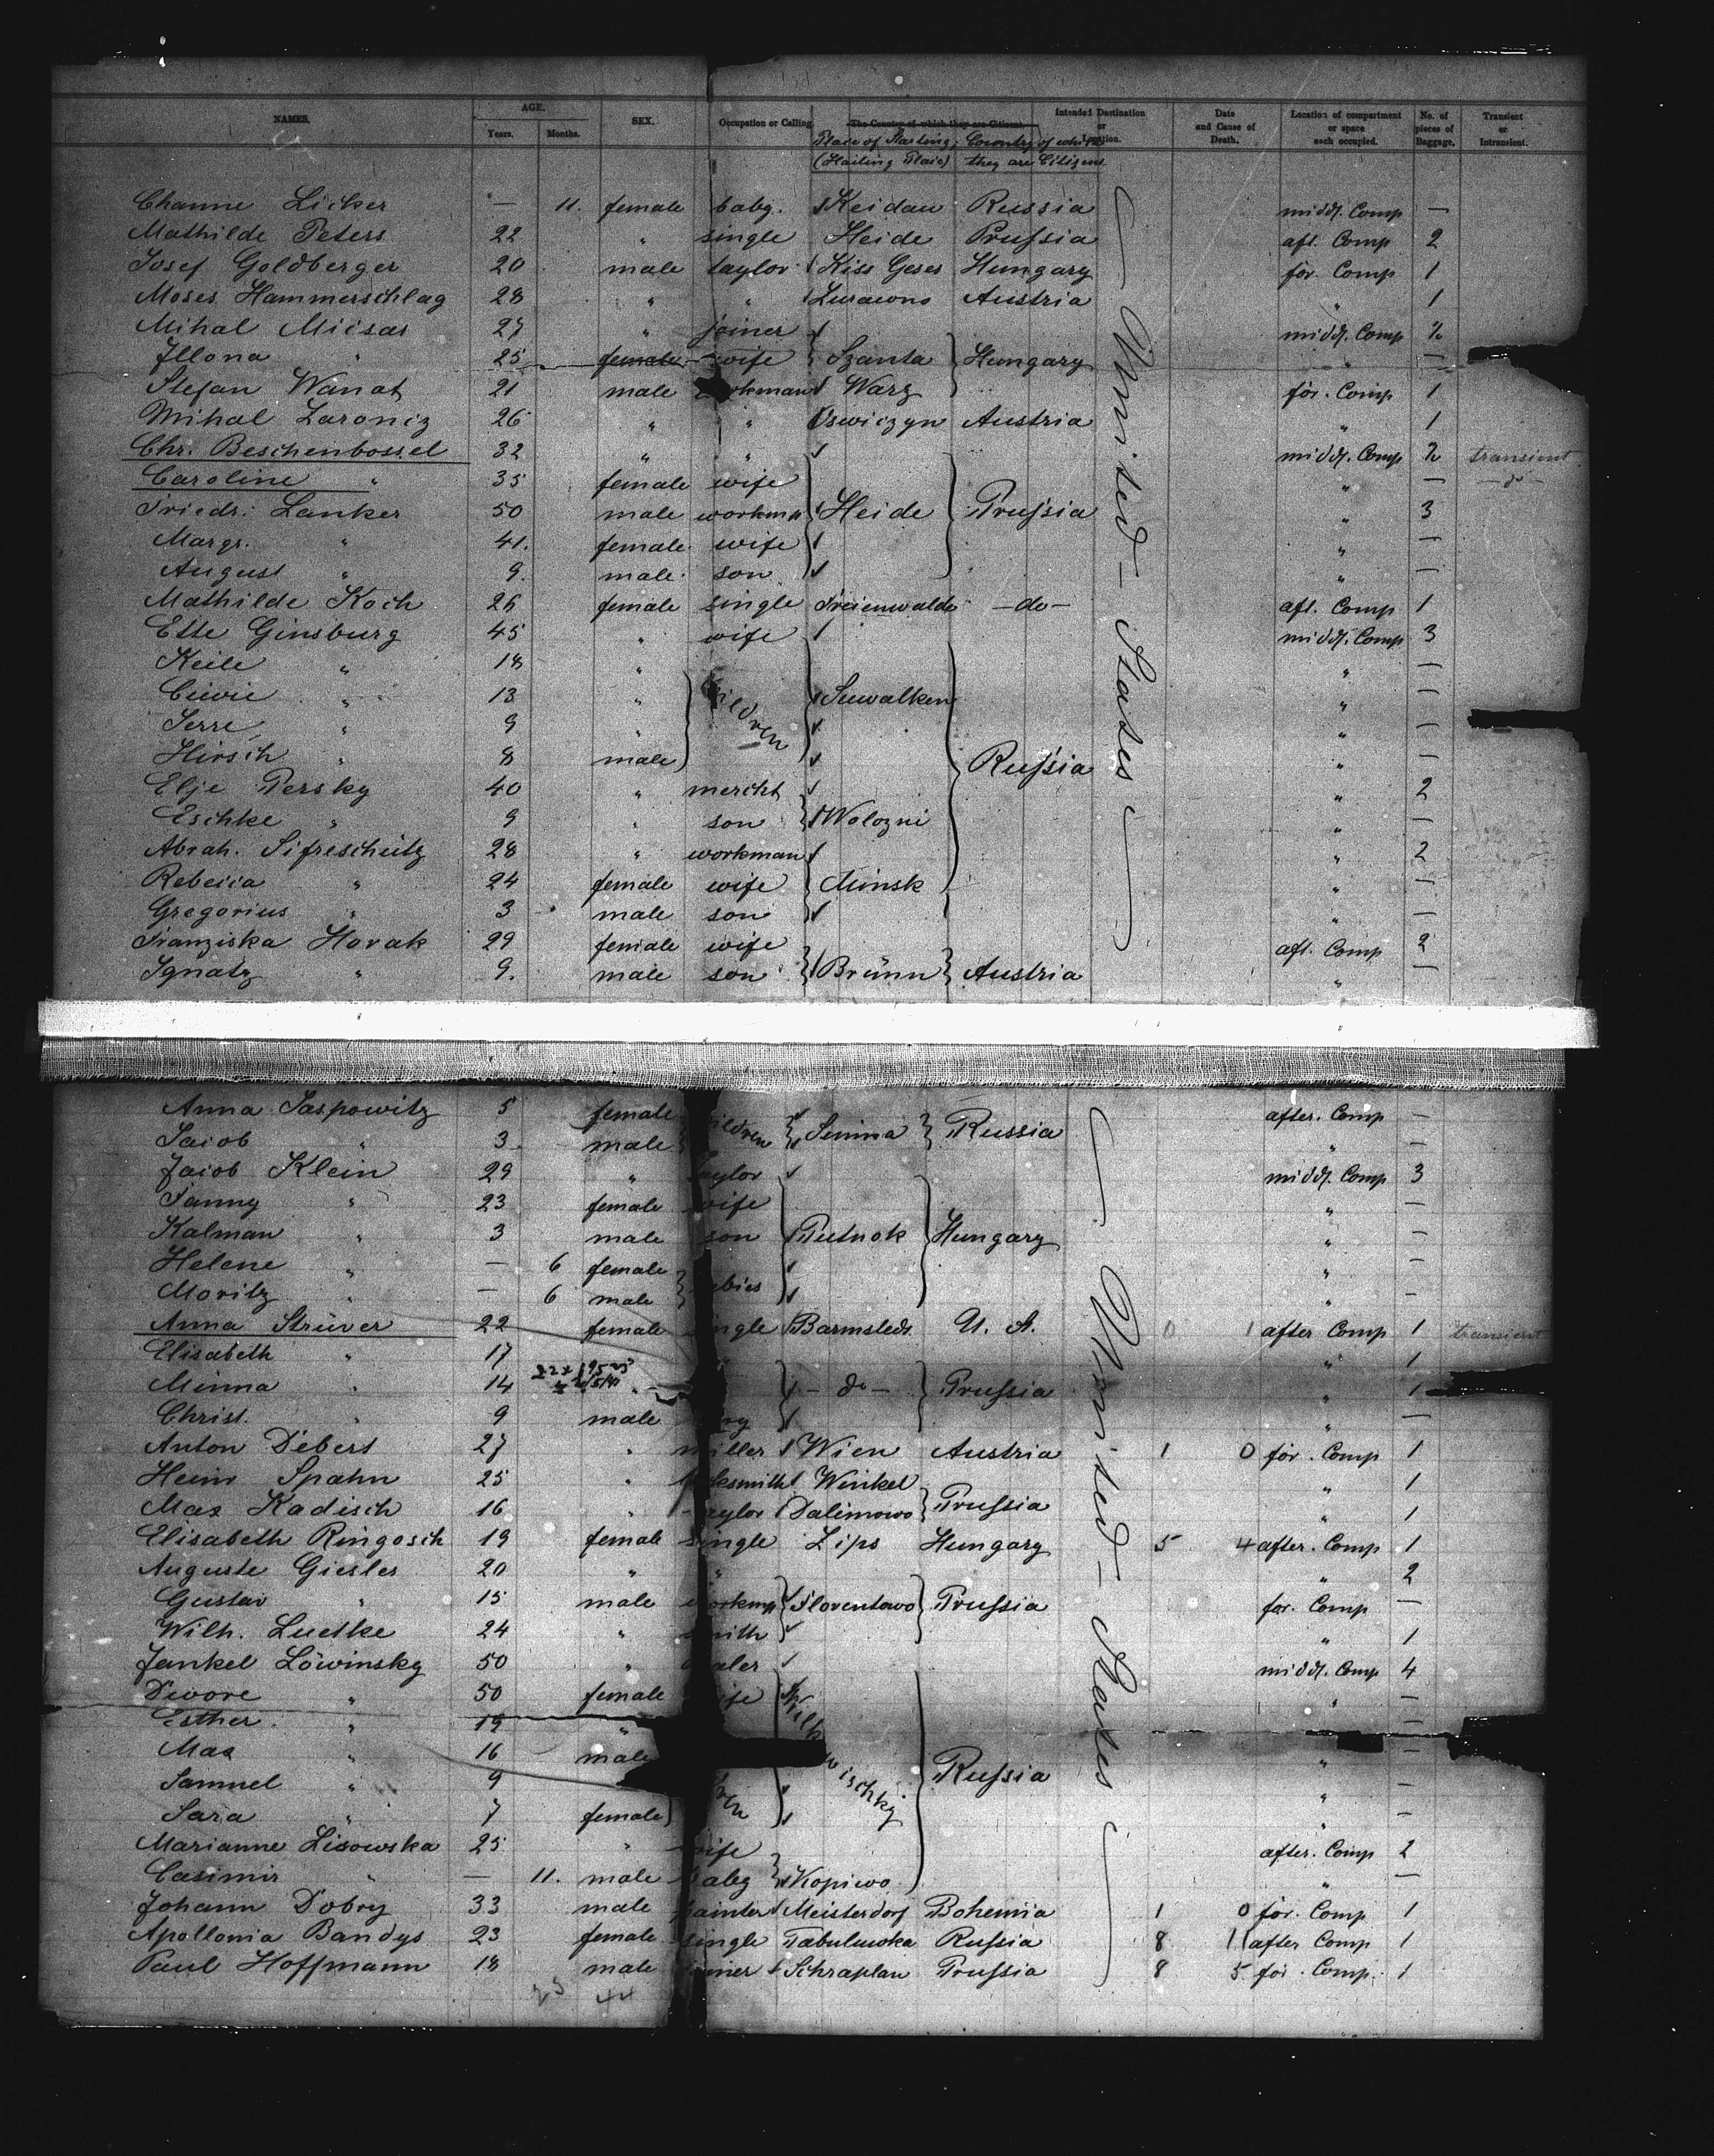 NAMES. AGE. Years. Months. SEX. Occupation or Calling. The Country of which they are Citizens. Intended Destination or Location. Date and Cause of Death. Location of compartment or space each occupied. No. of pieces of Baggage. Transient or Intransient.
Place of Starting; Country of which
(Hailing Place) they are Citizens
Channe Licker — 11. female baby. Keidan Russia midd. Comp —
Mathilde Peters 22 " single Heide Prussia aft. Comp 2
Josef Goldberger 20 male taylor Kiss Geses Hungary for. Comp 1
Moses Hammerschlag 28 " " Zurawno Austria " 1
Mihal Micsas 27 " joiner midd. Comp 2
Illona " 25 female wife Szanta Hungary " —
Stefan Wanat 21 male workman Warz for. Comp 1
Mihal Zaroniz 26 " " Oswiczyn Austria " 1
Chr. Beschenbossel 32 " " midd. Comp 2 transient
Caroline " 35 female wife " — — do —
Friedr. Lanker 50 male workmn Heide Prussia " 3
Margr. " 41. female wife " —
August " 9. male son " —
Mathilde Koch 26 female single Freienwalde — do — aft. Comp 1
Ette Ginsburg 45 " wife midd. Comp 3
Keile " 18 " " —
Ciwie " 13 " children Suwalken " —
Serre " 9 " " —
Hirsch " 8 male Russia " —
Elje Persky 40 " mercht " 2
Eschke " 9 " son Wolozni " —
Abrah. Sifreschütz 28 " workman " 2
Rebecca " 24 female wife Minsk " —
Gregorius " 3 male son " —
Franziska Horak 29 female wife aft. Comp 2
Ignatz " 9. male son Brünn Austria " —
— United-States —
Anna Saspowitz 5 female children Simma Russia after. Comp —
Jacob " 3 male " —
Jacob Klein 29 " taylor midd. Comp 3
Fanny " 23 female wife " —
Kalman " 3 male son Putnok Hungary " —
Helene " — 6 female babies " —
Moritz " — 6 male " —
Anna Strüver 22 female single Barmstedt U. A. 0 1 after Comp 1 transient
Elisabeth " 17 " " 1
Minna " 14 " — do — Prussia " 1
Christ. " 9 male " —
Anton Debert 27 " miller Wien Austria 1 0 for. Comp 1
Heinr Spahn 25 " locksmith Winkel " 1
Max Kadisch 16 " taylor Dalimowo Prussia " 1
Elisabeth Ringosch 19 female single Lips Hungary 5 4 after. Comp 1
Auguste Giesler 20 " " " 2
Gustav " 15 male workmn Florentowo Prussia for. Comp —
Wilh. Luetke 24 " smith " 1
Jankel Löwinsky 50 " midd. Comp 4
Dwore " 50 female wife " —
Esther " 19 " —
Max " 16 male " —
Samuel " 9 Russia " —
Sara " 7 female " —
Marianne Lisowska 25 " wife after. Comp 2
Casimir " — 11. male baby Kopiwo " —
Johann Dobry 33 male painter Meisterdorf Bohemia 1 0 for. Comp 1
Apollonia Bandys 23 female single Tabuluwka Russia 8 11 after Comp 1
Paul Hoffmann 18 male Schraplau Prussia 8 5 for. Comp. 1
— United-States —
44